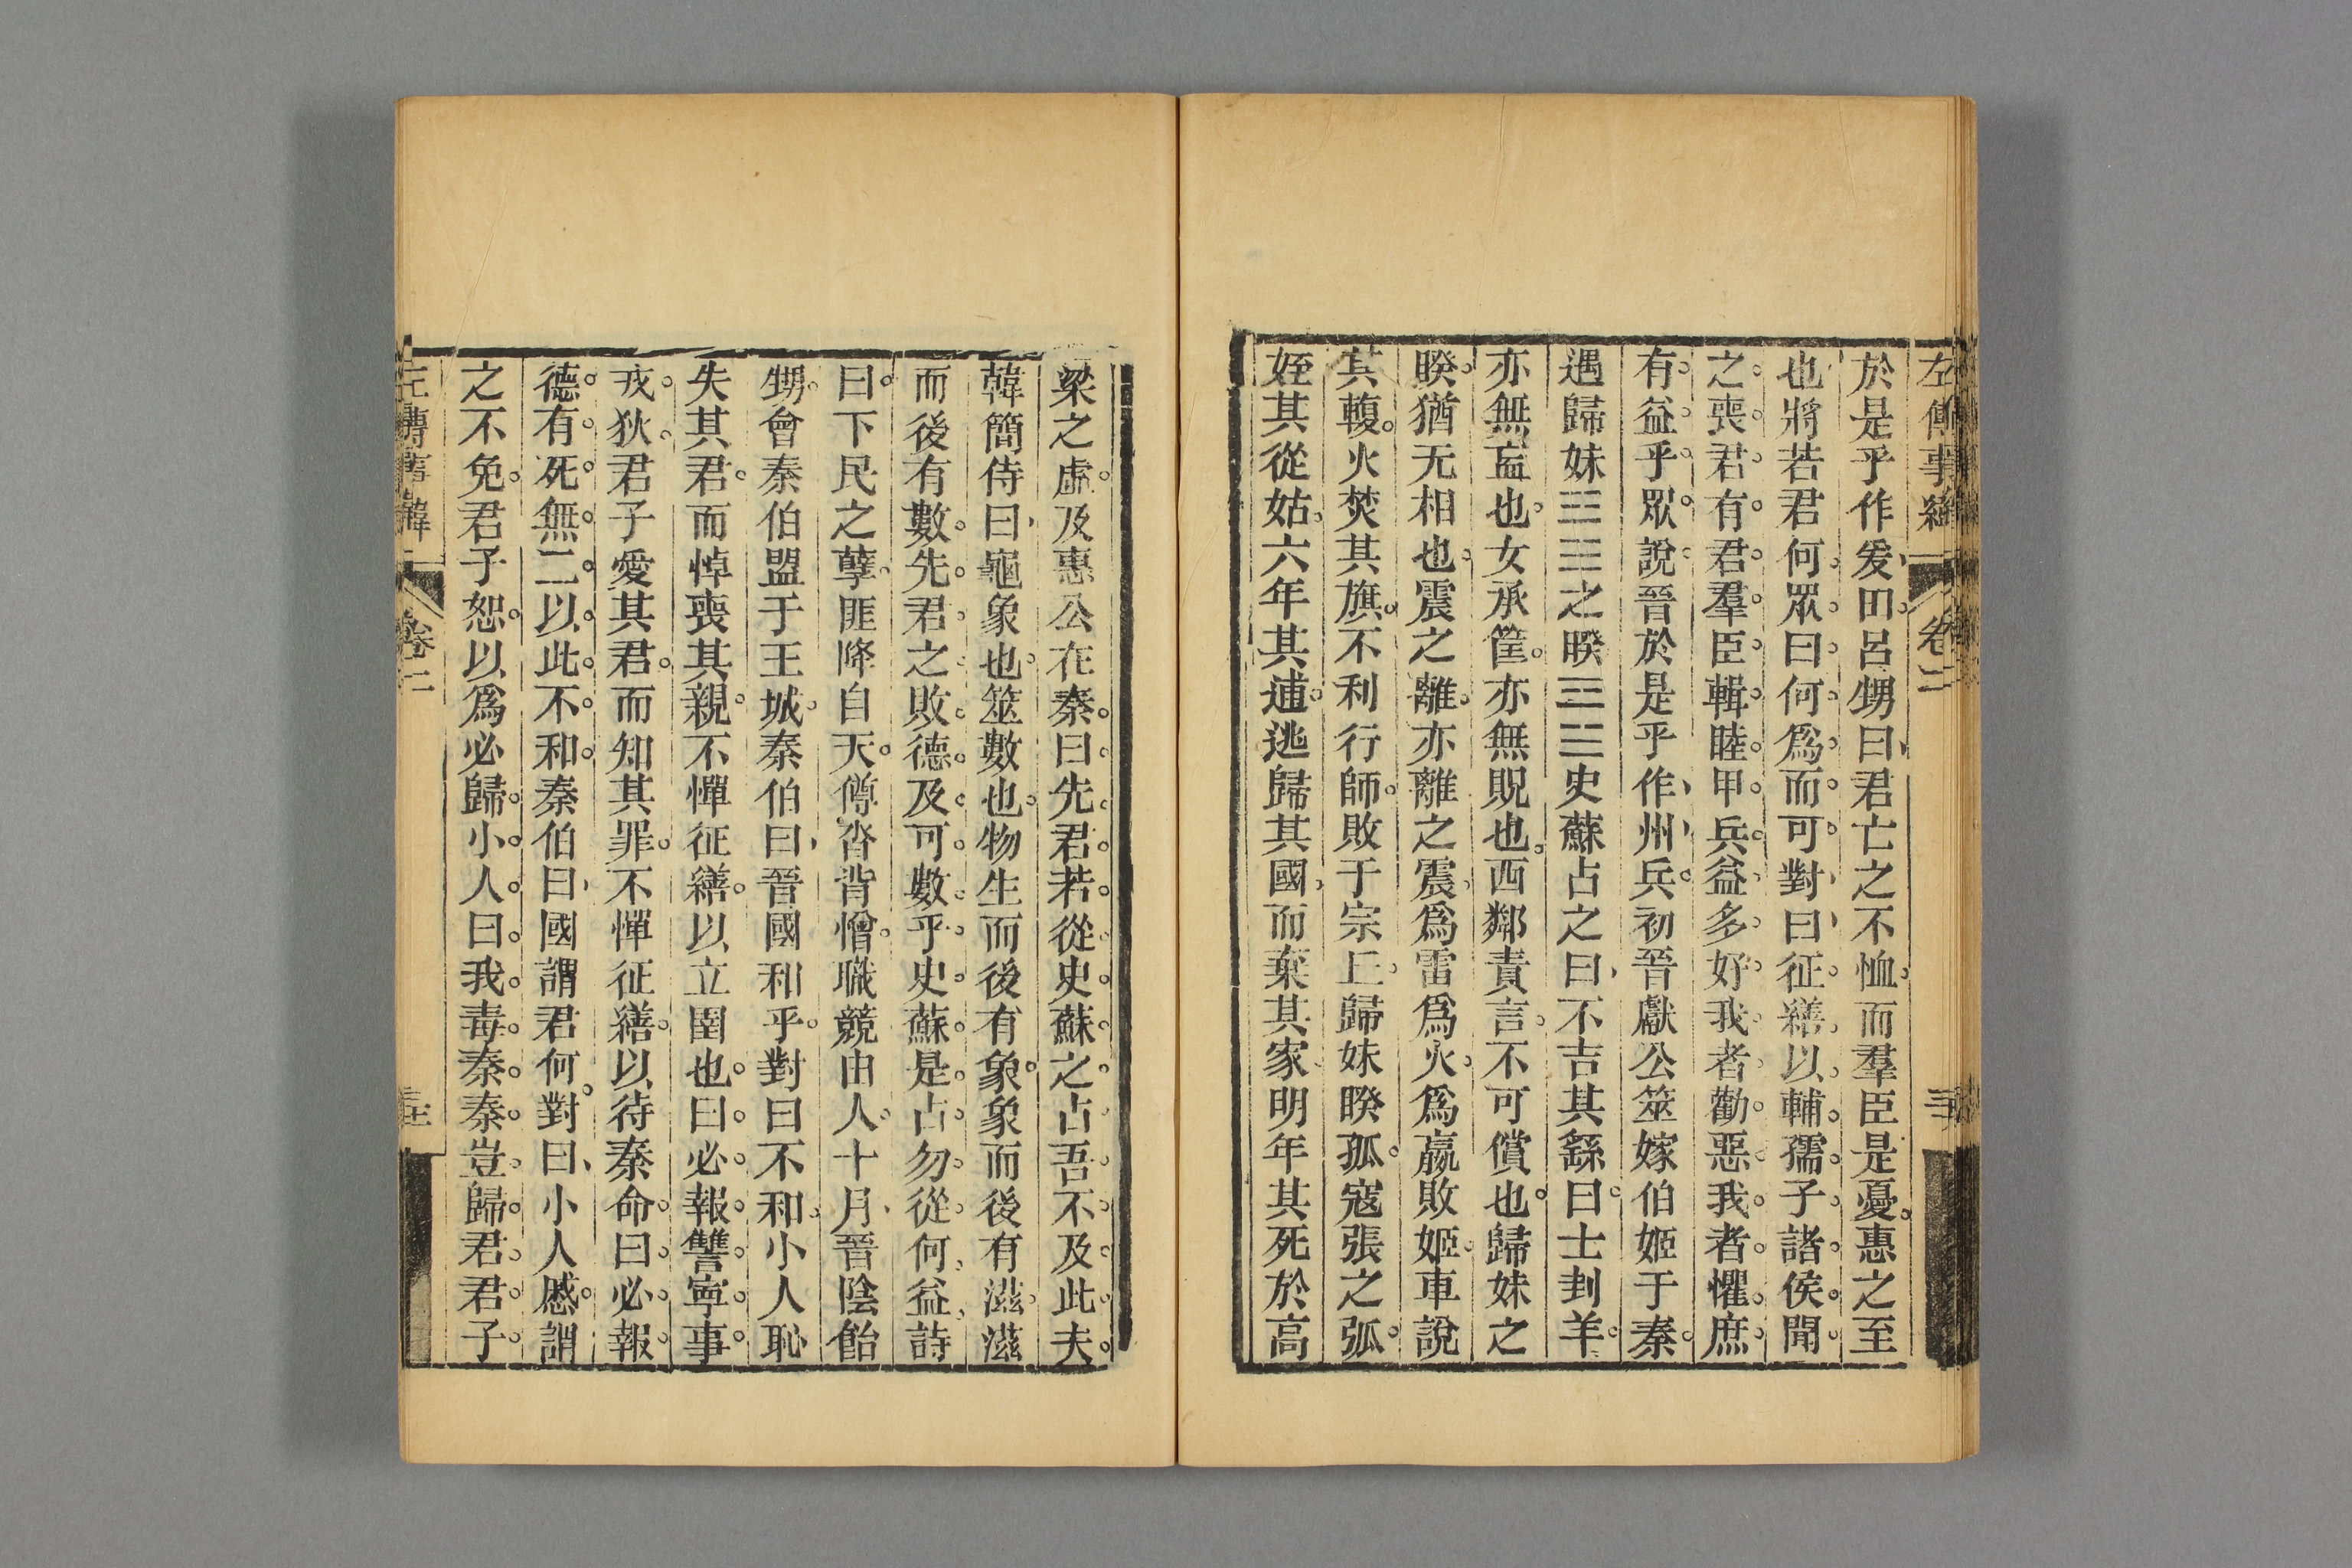 左傳事緯 卷二
於是乎作爰田呂甥曰君亡之不恤而羣臣是憂惠之至
也將若君何眾曰何爲而可對曰征繕以輔孺子諸侯聞
之喪君有君羣臣輯睦甲兵益多好我者勸惡我者懼庶
有益乎眾說晉於是乎作州兵初晉獻公筮嫁伯姬于秦
遇歸妹☳☱之睽☲☱史蘇占之曰不吉其繇曰士刲羊
亦無衁也女承筐亦無貺也西鄰責言不可償也歸妹之
睽猶无相也震之離亦離之震爲雷爲火爲嬴敗姬車說
其輹火焚其旗不利行師敗于宗丘歸妹睽孤寇張之弧
姪其從姑六年其逋逃歸其國而棄其家明年其死於高
梁之虛及惠公在秦曰先君若從史蘇之占吾不及此夫
韓簡侍曰龜象也筮數也物生而後有象象而後有滋滋
而後有數先君之敗德及可數乎史蘇是占勿從何益詩
曰下民之孽匪降自天僔沓背憎職競由人十月晉陰飴
甥會秦伯盟于王城秦伯曰晉國和乎對曰不和小人恥
失其君而悼喪其親不憚征繕以立圉也曰必報讐寧事
戎狄君子愛其君而知其罪不憚征繕以待秦命曰必報
德有死無二以此不和秦伯曰國謂君何對曰小人慼謂
之不免君子恕以爲必歸小人曰我毒秦秦豈歸君君子
卷二